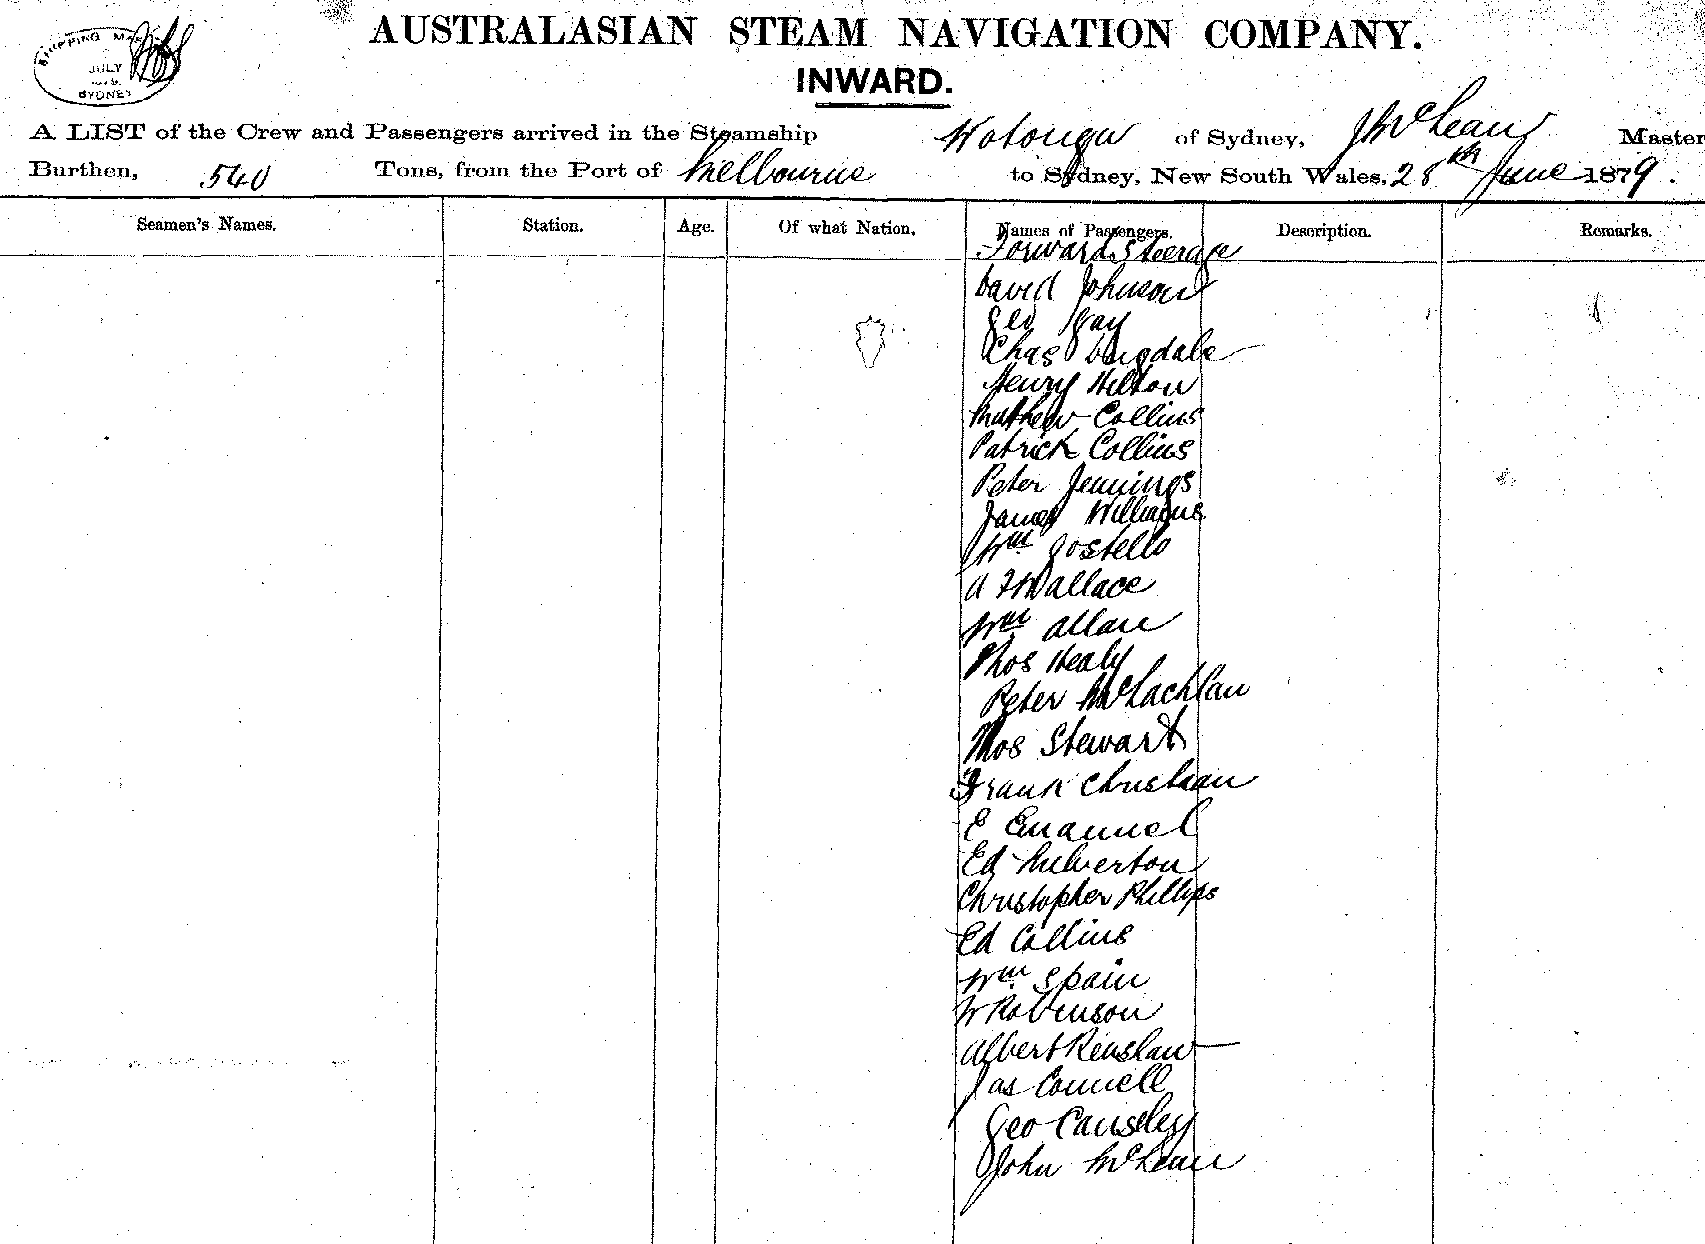 SHIPPING MA
JULY
SYDNEY
AUSTRALASIAN STEAM NAVIGATION COMPANY.
INWARD.
A LIST of the Crew and Passengers arrived in the Steamship Wotonga of Sydney, J McLean Master
Burthen, 540 Tons, from the Port of Melbourne to Sydney, New South Wales, 28th June 1879.
Seamen's Names. Station. Age. Of what Nation. Names of Passengers. Description. Remarks.
Forward Steerage
David Johnson
Geo Gay
Chas Dugdale
Henry Hilton
Mathew Collins
Patrick Collins
Peter Jennings
James Williams
Wm Costello
A Wallace
Wm Allan
Thos Healy
Peter McLachlan
Thos Stewart
Frank Christian
E Emanuel
Ed Milverton
Christopher Phillips
Ed Collins
Wm Spain
W Robinson
Albert Renshaw
Jas Connell
Geo Causley
John McLean